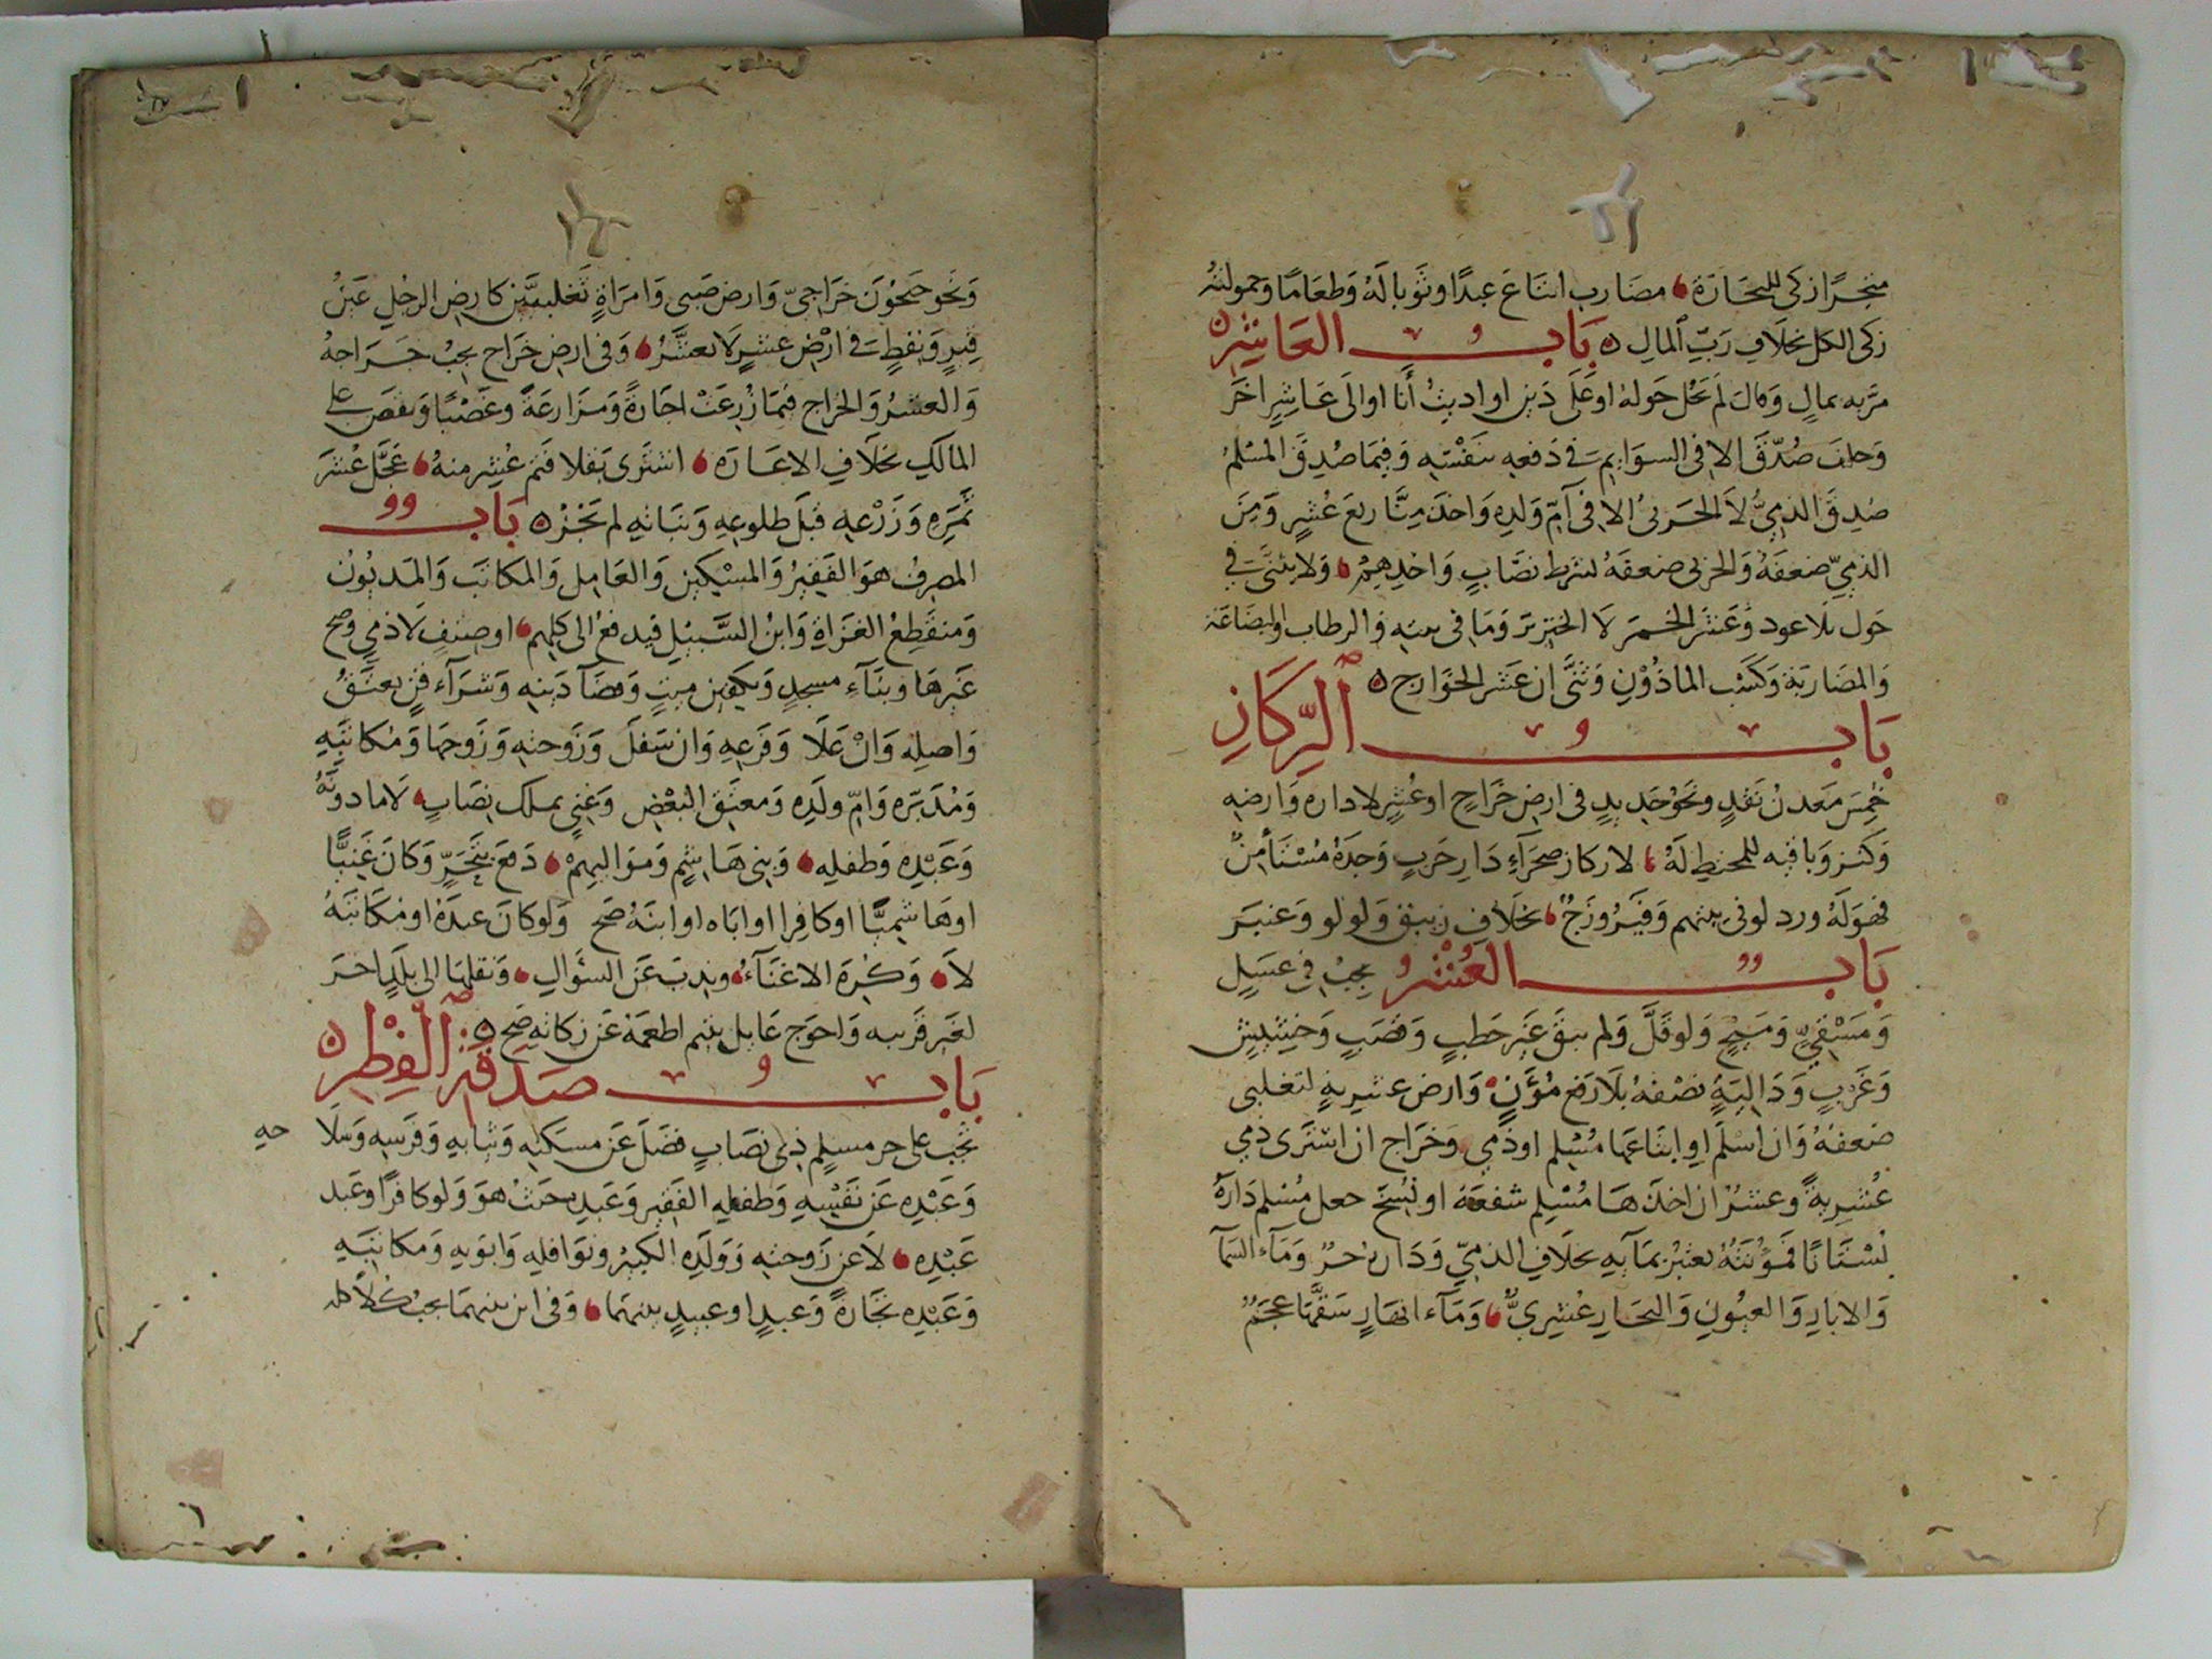 متجرا زكى للتجارة مضارب ابتاع عبدا وثوبا له وطعاما وحمولته
زكى الكل بخلاف رب المال باب العاشر
مر به بمال وقال لم يحل حوله او على دين او اديت أنا او الى عاشر اخر
وحلف صدق الا في السوايم في دفعه بنفسه وفيما صدق المسلم
صدق الذمي لا الحربي الا في أم ولده واخذ منا ربع عشر ومن
الذمي ضعفه والحربي ضعفه بشرط نصاب واخذهم ولا يثنى في
حول بلا عود وعشر الخمر لا الخنزير وما في بيته والرطاب والبضاعة
والمضاربة وكسب الماذون وثنى ان عشر الخوارج
باب الركاز
خمس معدن نقد ونحو حديد في ارض خراج او عشر لا داره وارضه
وكنز وباقيه للمختط له لا ركاز صحراء دار حرب وجده مستأمن
فهو له ورد لو في بيتهم وفيروزج بخلاف زيبق ولولو وعنبر
باب العشر يجب في عسل
ومسقي ومسيح ولو قل ولم يبق غير حطب وقصب وحشيش
وغرب ودالية نصفه بلا رفع مؤن وارض عشرية لتغلبي
ضعفه وان اسلم او ابتاعها مسلم او ذمي وخراج ان اشترى ذمي
عشرية وعشر ان اخذها مسلم شفعة او لفسخ جعل مسلم داره
بستانا فمؤنته تعتبر بمآيه بخلاف الذمي ودار حر ومآء السمآ
والابار والعيون والبحار عشري ومآء انهار شقها عجم
ونحو جيحون خراجي وارض صبي وامراة تغلبيين كارض الرجل عين
قير ونفط في ارض عشر لا يعشر وفي ارض خراج يجب خراجه
والعشر والخراج فيما زرعت اجارة ومزارعة وغصبا ونقص على
المالك بخلاف الاعارة اشترى بقلا فتم عشر منه عجل عشر
ثمره وزرعه قبل طلوعه ونباته لم تجز باب
المصرف هو الفقير والمسكين والعامل والمكاتب والمديون
ومنقطع الغزاة وابن السبيل فيدفع الى كلهم او صنف لا ذمي وصح
غيرها وبنآء مسجد وتكفين ميت وقضآ دينه وشرآء قن يعتق
واصله وان علا وفرعه وان سفل وزوجته وزوجها ومكاتبه
ومدبره وام ولده ومعتق البعض وغني يملك نصاب لا ما دونه
وعبده وطفله وبني هاشم ومواليهم دفع بتحر وكان غنيا
او هاشميا او كافرا او اباه او ابنه صح ولو كان عبده او مكاتبه
لا وكره الاغنآء وندب عن السؤال ونقلها الى بلد اخر
لغير قريبه واحوج عايل يتيم اطعمه عن زكاته صح
باب صدقة الفطر
تجب على حر مسلم ذي نصاب فضل عن مسكنه وثيابه وفرسه وسلا حه
وعبده عن نفسه وطفله الفقير وعبده حنث هو ولو كافرا وعبد
عبده لا عن زوجته وولده الكبير ونوافله وابويه ومكاتبه
وعبده تجارة وعبد او عبيد بينهما وفي ابن بينهما يجب كلا